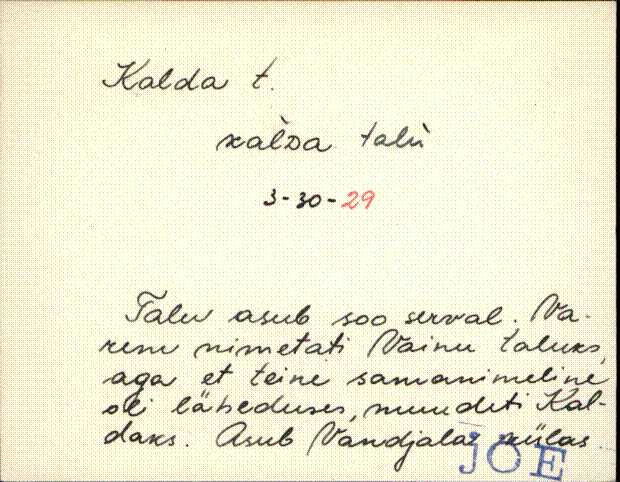 Kalda t.
kàlda talù
3-30-29
Talu asub soo serval. Va-
rem nimetati Vainu taluks,
aga et teine samanimeline
oli läheduses, muudeti Kal-
daks. Asub Vandjala külas.
JOE